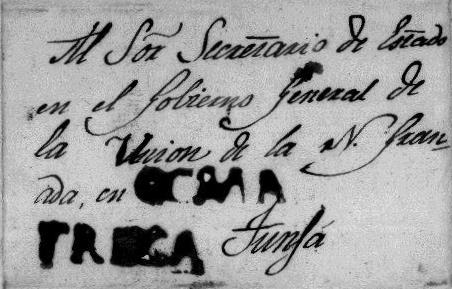 Al Sor Secretario de Estado
en el Gobierno General de
la Union de la N. Gran-
ada, en
Tunja